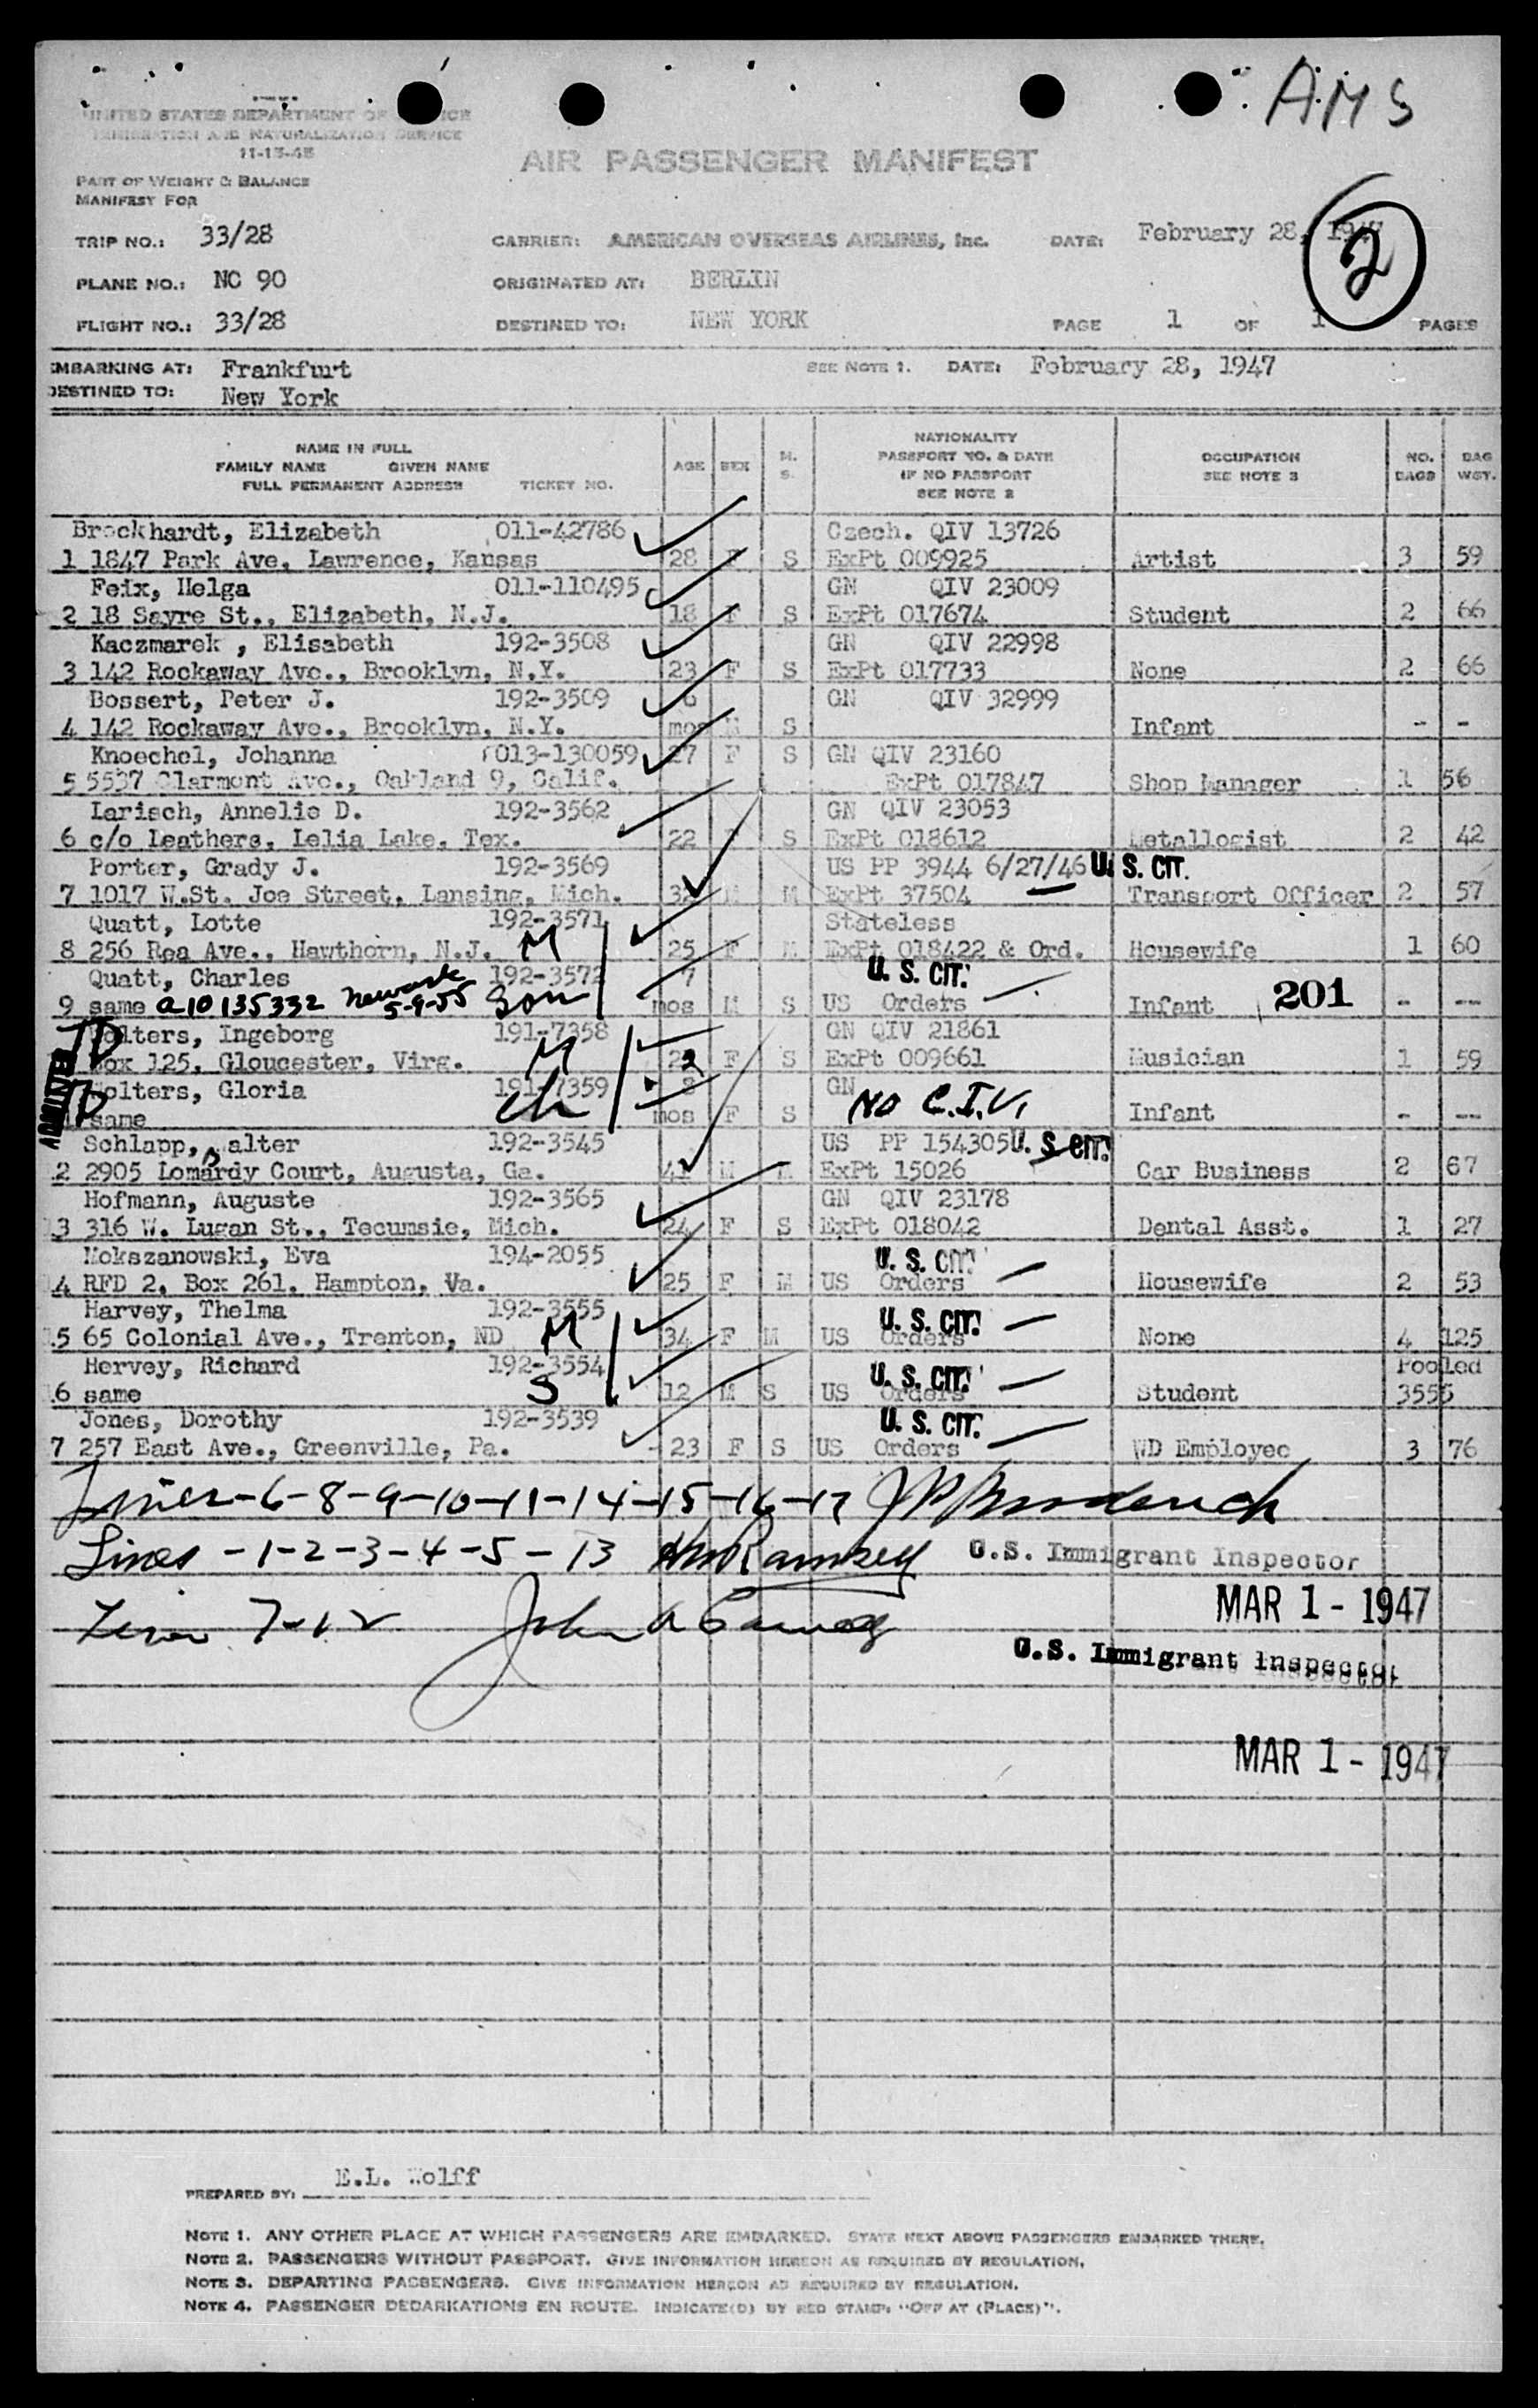 AMS
UNITED STATES DEPARTMENT OF
IMMIGRATION AND NATURALIZATION SERVICE
11-15-45
AIR PASSENGER MANIFEST
PART OF WEIGHT & BALANCE
MANIFEST FOR
TRIP NO.: 33/28 CARRIER: AMERICAN OVERSEAS AIRLINES, Inc. DATE: February 28, 1947
2
PLANE NO.: NC 90 ORIGINATED AT: BERLIN
FLIGHT NO.: 33/28 DESTINED TO: NEW YORK PAGE 1 OF 1 PAGES
EMBARKING AT: Frankfurt SEE NOTE 1. DATE: February 28, 1947
DESTINED TO: New York
NAME IN FULL
FAMILY NAME GIVEN NAME
FULL PERMANENT ADDRESS TICKET NO.
AGE SEX M. S.
NATIONALITY
PASSPORT NO. & DATE
IF NO PASSPORT
SEE NOTE 2
OCCUPATION
SEE NOTE 3
NO. BAGS
BAG WGT.
Brockhardt, Elizabeth 011-42786 Czech. QIV 13726
1 1847 Park Ave, Lawrence, Kansas 28 F S ExPt 009925 Artist 3 59
Feix, Helga 011-110495 GN QIV 23009
2 18 Sayre St., Elizabeth, N.J. 18 F S ExPt 017674 Student 2 66
Kaczmarek , Elisabeth 192-3508 GN QIV 22998
3 142 Rockaway Ave., Brooklyn, N.Y. 23 F S ExPt 017733 None 2 66
Bossert, Peter J. 192-3509 6 GN QIV 32999
4 142 Rockaway Ave., Brooklyn, N.Y. mos M S Infant - -
Knoechel, Johanna 013-130059 27 F S GN QIV 23160
5 5537 Clarmont Ave., Oakland 9, Calif. ExPt 017847 Shop Manager 1 56
Larisch, Annelie D. 192-3562 GN QIV 23053
6 c/o Leathers, Lelia Lake, Tex. 22 F S ExPt 018612 Metallogist 2 42
Porter, Grady J. 192-3569 US PP 3944 6/27/46 U. S. CIT.
7 1017 W.St. Joe Street, Lansing, Mich. 32 M M ExPt 37504 Transport Officer 2 57
Quatt, Lotte 192-3571 Stateless
8 256 Rea Ave., Hawthorn, N.J. M 25 F M ExPt 018422 & Ord. Housewife 1 60
Quatt, Charles 192-3572 7 U. S. CIT.
9 same a10135332 Newark 5-9-55 Son mos M S US Orders Infant 201 - --
TD Wolters, Ingeborg 191-7358 GN QIV 21861
Box 125, Gloucester, Virg. M 22 F S ExPt 009661 Musician 1 59
ADMITTED
TD Wolters, Gloria 191-7359 8 GN
same ch mos F S No C.I.V. Infant - --
Schlapp, alter 192-3545 US PP 154305 U. S. CIT.
2 2905 Lomardy Court, Augusta, Ga. 41 M M ExPt 15026 Car Business 2 67
Hofmann, Auguste 192-3565 GN QIV 23178
3 316 W. Lugan St., Tecumsie, Mich. 24 F S ExPt 018042 Dental Asst. 1 27
Mokszanowski, Eva 194-2055 U. S. CIT.
4 RFD 2, Box 261, Hampton, Va. 25 F M US Orders Housewife 2 53
Harvey, Thelma 192-3555 U. S. CIT.
15 65 Colonial Ave., Trenton, ND M 34 F M US Orders None 4 125
Hervey, Richard 192-3554 U. S. CIT. Pooled
6 same S 12 M S US Orders Student 3555
Jones, Dorothy 192-3539 U. S. CIT.
7 257 East Ave., Greenville, Pa. 23 F S US Orders WD Employee 3 76
Lines-6-8-9-10-11-14-15-16-17 JP Broderick
Lines -1-2-3-4-5-13 Ramsey U.S. Immigrant Inspector
MAR 1 - 1947
7-12 John A
U.S. Immigrant Inspector
MAR 1 - 1947
PREPARED BY: E.L. Wolff
NOTE 1. ANY OTHER PLACE AT WHICH PASSENGERS ARE EMBARKED. STATE NEXT ABOVE PASSENGERS EMBARKED THERE.
NOTE 2. PASSENGERS WITHOUT PASSPORT. GIVE INFORMATION HEREON AS REQUIRED BY REGULATION.
NOTE 3. DEPARTING PASSENGERS. GIVE INFORMATION HEREON AS REQUIRED BY REGULATION.
NOTE 4. PASSENGER DEBARKATIONS EN ROUTE. INDICATE(D) BY RED STAMP: "OFF AT (PLACE)".